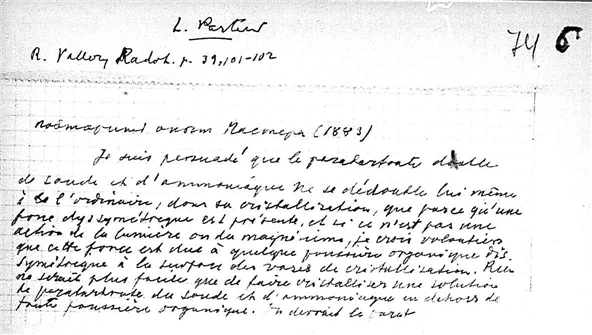 L. Pasteur
R. Vallery Radot. p. 39, 101-102
74 6
повторить опыт Пастера (1883)
Je suis persuadé que le paratartrate double
de soude et d'ammoniaque ne se dédouble lui même
à l'ordinaire, dans sa cristallisation, que parce qu'une
force dyssymétrique est présente, et si ce n'est pas une
action de la lumière ou du magnétisme, je crois volontiers
que cette force est due à quelque poussière organique dis
symétrique à la surface des vases de cristallisation. Rien
ne serait plus facile que de faire cristalliser une solution
de paratartrate de soude et d'ammoniaque en dehors de
toute poussière organique. On devrait